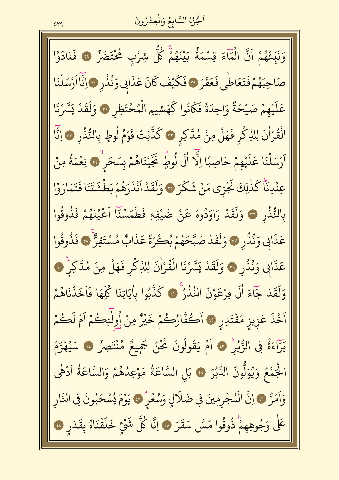 اَلْجُزْءُ السَّابِعُ وَالْعِشْرُونَ
وَنَبِّئْهُمْ اَنَّ الْمَٓاءَ قِسْمَةٌ بَيْنَهُمْۚ كُلُّ شِرْبٍ مُحْتَضَرٌ ﴿٢٨﴾ فَنَادَوْا
صَاحِبَهُمْ فَتَعَاطٰى فَعَقَرَ ﴿٢٩﴾ فَكَيْفَ كَانَ عَذَابٖى وَنُذُرِ ﴿٣٠﴾ اِنَّٓا اَرْسَلْنَا
عَلَيْهِمْ صَيْحَةً وَاحِدَةً فَكَانُوا كَهَشٖيمِ الْمُحْتَظِرِ ﴿٣١﴾ وَلَقَدْ يَسَّرْنَا
الْقُرْاٰنَ لِلذِّكْرِ فَهَلْ مِنْ مُدَّكِرٍ ﴿٣٢﴾ كَذَّبَتْ قَوْمُ لُوطٍ بِالنُّذُرِ ﴿٣٣﴾ اِنَّٓا
اَرْسَلْنَا عَلَيْهِمْ حَاصِبًا اِلَّٓا اٰلَ لُوطٍ نَجَّيْنَاهُمْ بِسَحَرٍ ﴿٣٤﴾ نِعْمَةً مِنْ
عِنْدِنَاۜ كَذٰلِكَ نَجْزٖى مَنْ شَكَرَ ﴿٣٥﴾ وَلَقَدْ اَنْذَرَهُمْ بَطْشَتَنَا فَتَمَارَوْا
بِالنُّذُرِ ﴿٣٦﴾ وَلَقَدْ رَاوَدُوهُ عَنْ ضَيْفِهٖ فَطَمَسْنَٓا اَعْيُنَهُمْ فَذُوقُوا
عَذَابٖى وَنُذُرِ ﴿٣٧﴾ وَلَقَدْ صَبَّحَهُمْ بُكْرَةً عَذَابٌ مُسْتَقِرٌّۚ ﴿٣٨﴾ فَذُوقُوا
عَذَابٖى وَنُذُرِ ﴿٣٩﴾ وَلَقَدْ يَسَّرْنَا الْقُرْاٰنَ لِلذِّكْرِ فَهَلْ مِنْ مُدَّكِرٍ۟ ﴿٤٠﴾
وَلَقَدْ جَٓاءَ اٰلَ فِرْعَوْنَ النُّذُرُۚ ﴿٤١﴾ كَذَّبُوا بِاٰيَاتِنَا كُلِّهَا فَاَخَذْنَاهُمْ
اَخْذَ عَزٖيزٍ مُقْتَدِرٍ ﴿٤٢﴾ اَكُفَّارُكُمْ خَيْرٌ مِنْ اُو۬لٰٓئِكُمْ اَمْ لَكُمْ
بَرَٓاءَةٌ فِى الزُّبُرِۚ ﴿٤٣﴾ اَمْ يَقُولُونَ نَحْنُ جَمٖيعٌ مُنْتَصِرٌ ﴿٤٤﴾ سَيُهْزَمُ
الْجَمْعُ وَيُوَلُّونَ الدُّبُرَ ﴿٤٥﴾ بَلِ السَّاعَةُ مَوْعِدُهُمْ وَالسَّاعَةُ اَدْهٰى
وَاَمَرُّ ﴿٤٦﴾ اِنَّ الْمُجْرِمٖينَ فٖى ضَلَالٍ وَسُعُرٍۢ ﴿٤٧﴾ يَوْمَ يُسْحَبُونَ فِى النَّارِ
عَلٰى وُجُوهِهِمْۜ ذُوقُوا مَسَّ سَقَرَ ﴿٤٨﴾ اِنَّا كُلَّ شَىْءٍ خَلَقْنَاهُ بِقَدَرٍ ﴿٤٩﴾